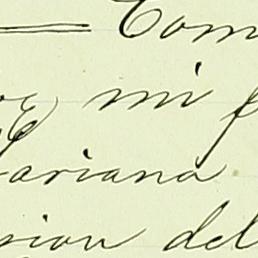 Com
mi f
ariana
sion del